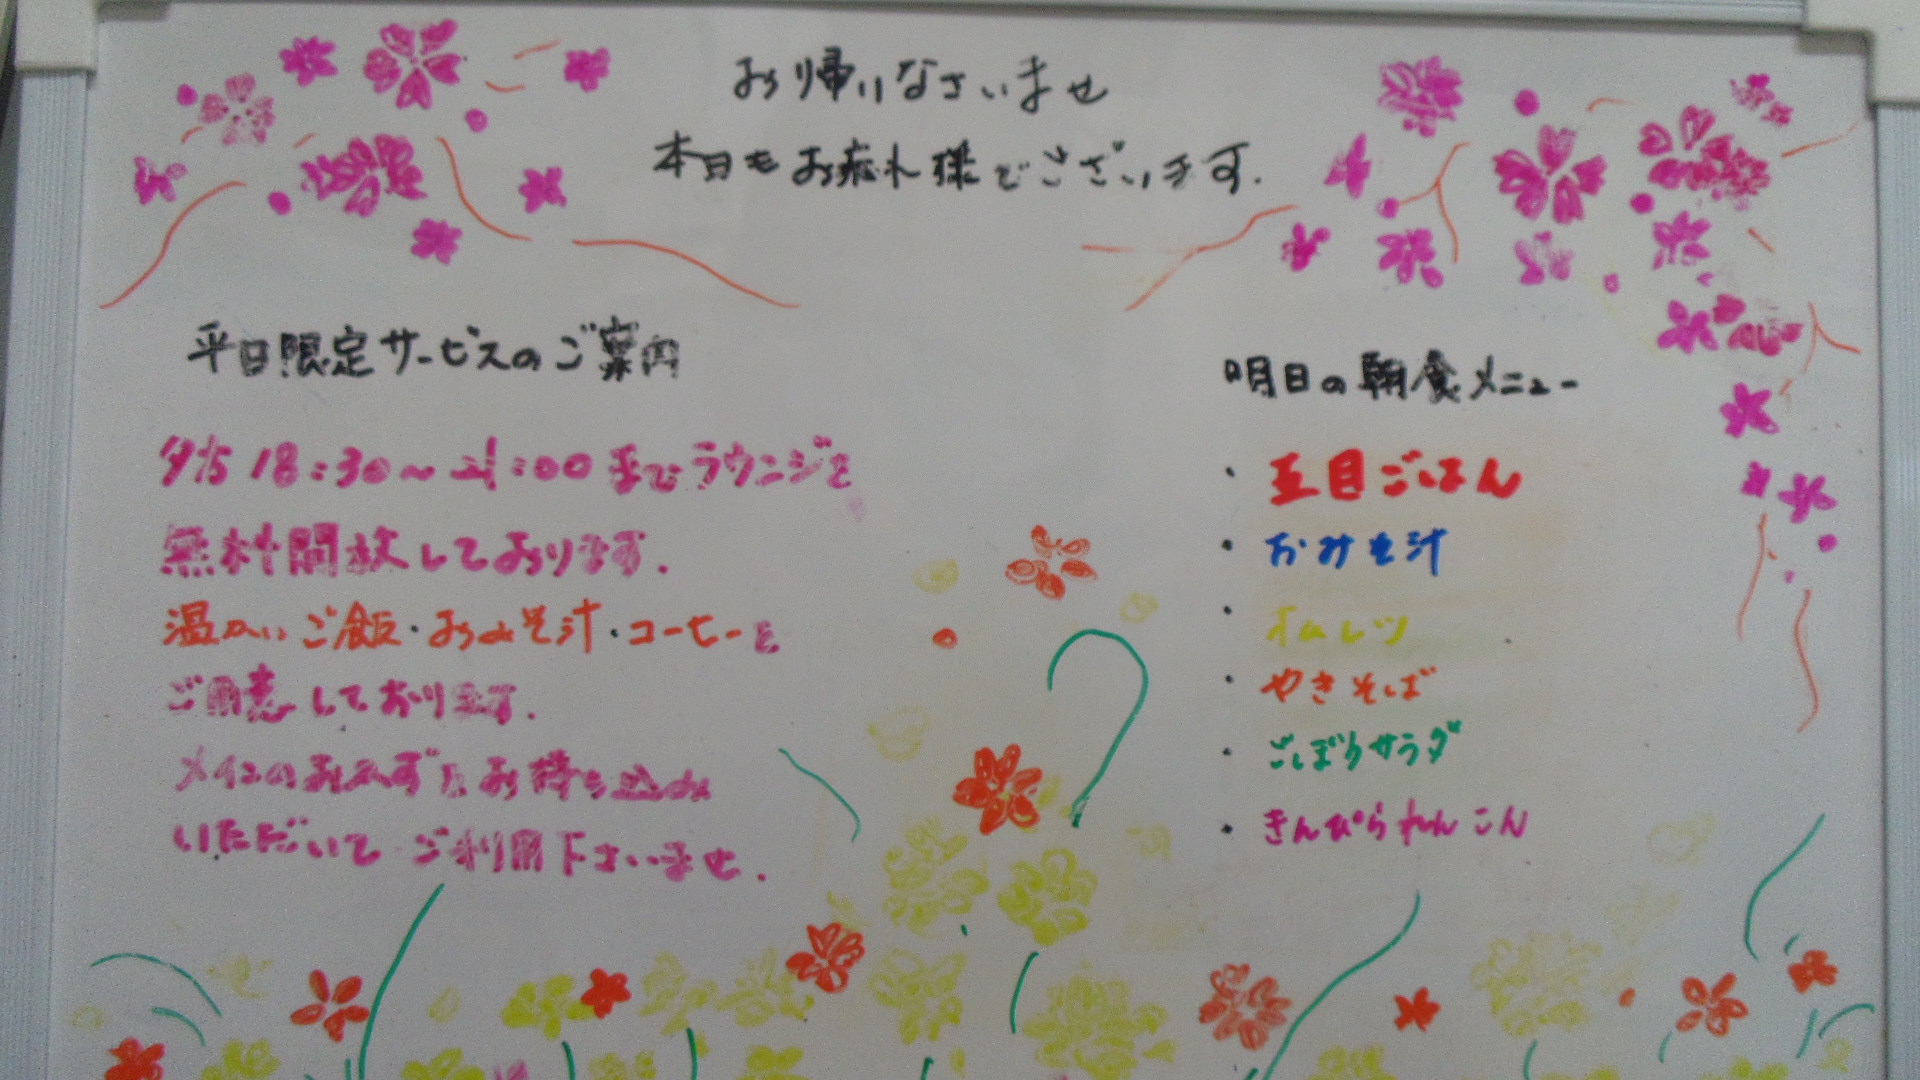 お帰りなさいませ
本日もお疲れ様でございます.
平日限定サービスのご案内
夕方18:30～21:00までラウンジを
無料開放しております.
温かいご飯・おみそ汁・コーヒーを
ご用意しております.
メインのおかずをお持ち込み
いただいてご利用下さいませ.
明日の朝食メニュー
・五目ごはん
・おみそ汁
・オムレツ
・やきそば
・ごぼうサラダ
・きんぴられんこん